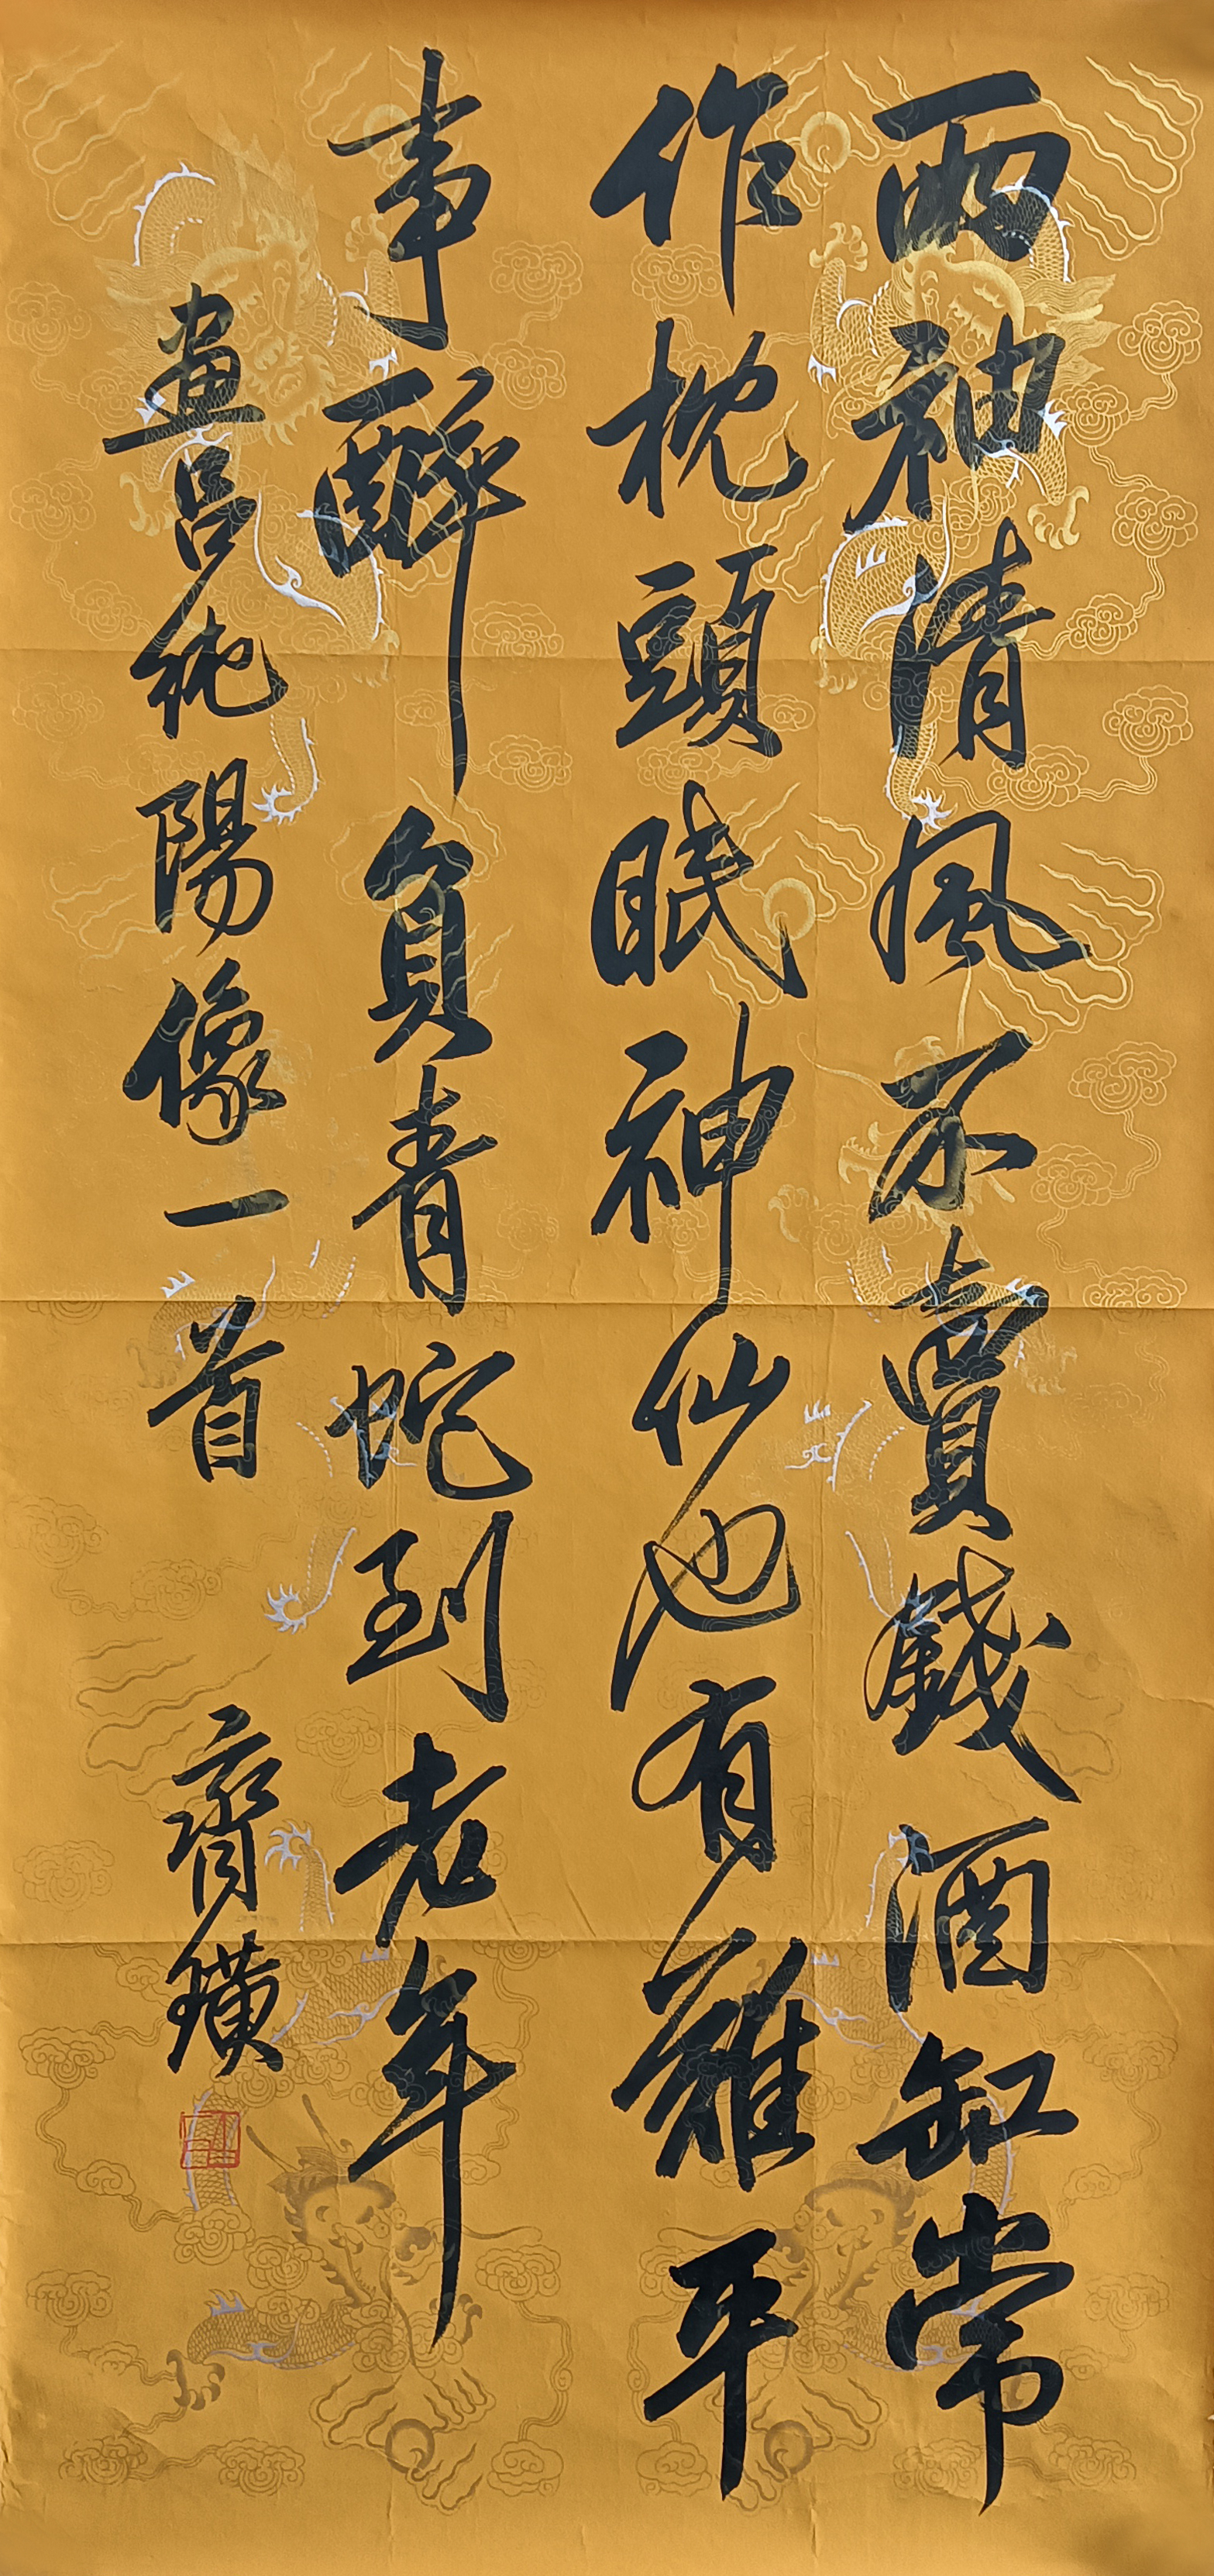 両袖清風不賣錢酒缸常
作枕頭眠神仙也有難平
事醉負青蛇到老年
畫呂純陽像一首 齊璜